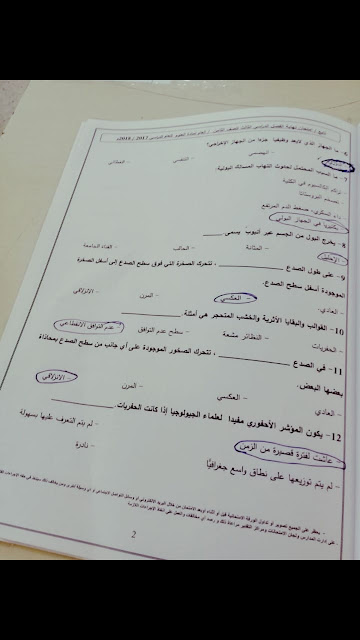 تابع / امتحان نهاية الفصل الدراسي الثالث للصف الثامن / العام لمادة العلوم العام الدراسي 2017 / 2018م
6- ما الجهاز الذي لا يعد وظيفيا جزءا من الجهاز الإخراجي؟
- الهضمي - التنفسي - العضلي
7- ما السبب المحتمل لحدوث التهاب المسالك البولية:
- تراكم الكالسيوم في الكلية
- تضخم البروستاتا
- داء السكري/ ضغط الدم المرتفع
- بكتيريا في الجهاز البولي
8- يخرج البول من الجسم عبر أنبوب يسمى
- الإحليل - المثانة - الحالب - القناة الجامعة
9- على طول الصدع ________ ، تتحرك الصخرة التي فوق سطح الصدع إلى أسفل الصخرة
الموجودة أسفل سطح الصدع.
- العادي. - العكسي - المرن - الانزلاقي
10- القوالب والبقايا الأثرية والخشب المتحجر هي أمثلة.
- الحفريات - النظائر مشعة - سطح عدم التوافق - عدم التوافق الانقطاعي
11- في الصدع ________ ، تتحرك الصخور الموجودة على أي جانب من سطح الصدع بمحاذاة
بعضها البعض.
- العادي - العكسي - المرن - الانزلاقي
12- يكون المؤشر الأحفوري مفيدا لعلماء الجيولوجيا إذا كانت الحفريات ________.
- عاشت لفترة قصيرة من الزمن - لم يتم التعرف عليها بسهولة
- لم يتم توزيعها على نطاق واسع جغرافيًا - نادرة
2